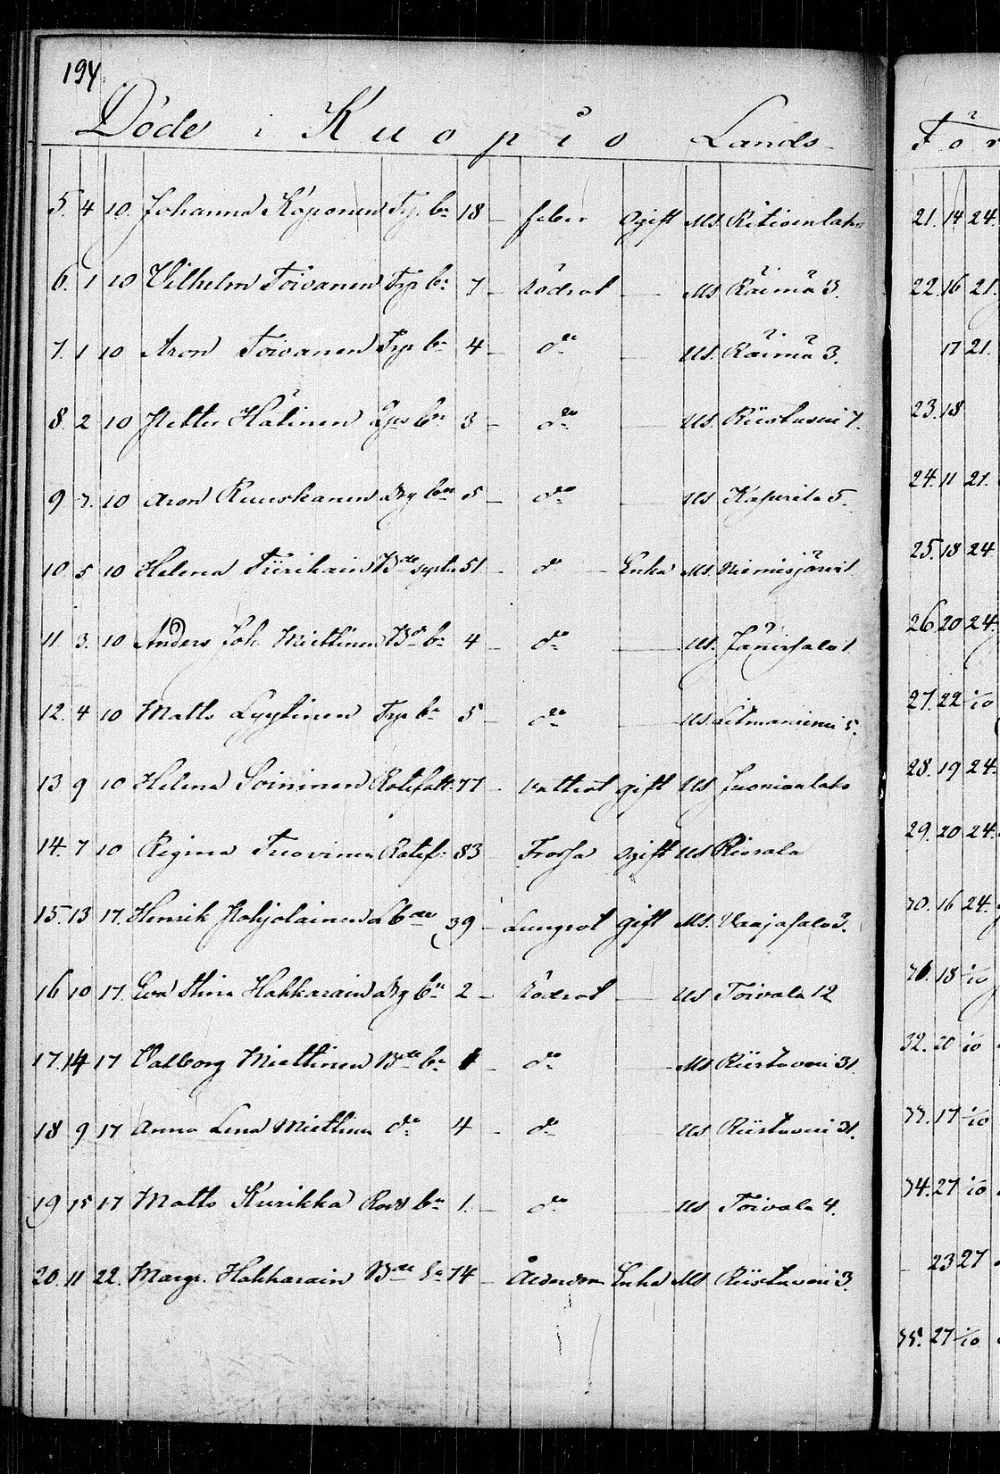 194
Döde i Kuopio Lands
För
5. 4 10. Johanna Kaponen Trp. bn 18 - feber ogift Ms. Ritisenlaks
6. 1 10 Vilhelm Toivanen Trp bn 7 - Rödsot — Ms Räimä 3.
7. 1 10 Aron Toivanen Trp bn 4 - do — Ms. Räimä 3.
8. 2 10 Petter Hätinen bn 3 - do — Ms. Riistaveni 7.
9 7. 10 Aron Ruuskanen Drg bn 5 - do — Ms Kasurila 5.
10. 5 10 Helena Tiirikain Bde 51 - do Enka Ms. Niemisjärvi 1
11 3. 10 Anders Joh. Miettinen Bd bn 4 - do — Ms. Jänissalo 1
12. 4 10 Matts Lyytinen Trp bn 5 - do — Ms Litmaniemi 5.
13 9 10 Helena Soininen Rotefatt. 77 - Vattsot gift Ms Juonionlaks
14. 7 10 Regina Tuovinen Rotef: 83 Frossa ogift Ms Rissala
15. 13 17. Henrik Pohjolainen 39 - Lungsot gift Ms. Vaajasalo 3.
16 10 17. Eva Stina Hakkarain Drg bn 2 - Rödsot — Ms Toivala 12
17. 14 17 Valborg Miettinen Bde bn 1 - do — Ms Riistaveni 31.
18 9 17 Anna Lena Miettinen do 4 - do — Ms Riistaveni 31.
19 15 17 Matts Kurikka bn 1. - do — Ms Toivala 4.
20. 11 22. Margr. Hakkarain Bde 74 - Ålderdom Enka Ms Riistaveni 3.
21. 14 24.
22. 16 21.
17 21.
23. 18
24. 11 21.
25. 18 24.
26 20 24.
27. 22 1/10
28. 19 24.
29. 20 24.
30. 16 24.
18 1/10
32. 20 1/10
33. 17 1/10
34. 27 1/10
23 27
35. 27 1/10